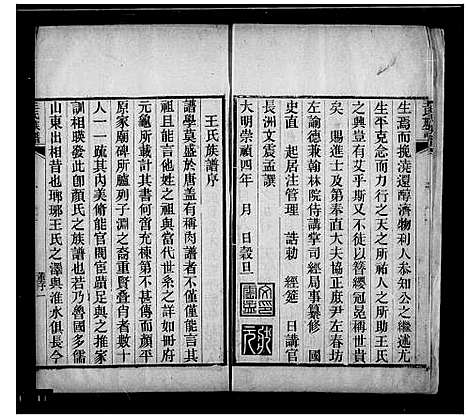 生焉而挽澆還醇濟物利人泰知公之繼述尤
生平克念而力行之天之所祐人之所助王氏
之興豈有艾乎斯又不徒以簪纓冠蓋顯榮者
矣 賜進士及第奉直大夫協正庶尹左春坊
左諭德兼翰林院侍講掌司經局事纂修 國
史直 起居注管理 誥勅 經筵 日講官
長洲文震孟撰
大明崇禎四年 月 日穀旦
王氏族譜序
譜學莫盛於唐蓋有稱內譜者不僅僅能言其
祖且能言他姓之祖與當代世系之詳如冊府
元龜所載計其書何啻充棟第不甚傳而顏平
原家廟碑所臚列子淵之裔重賢疊肖者數十
人一一疏其內美術能官閥臣蹟足與之推家
訓相映發此卽顏氏之族譜也若乃魯國多儒
山東出相昔也瑯琊王氏之澤與淮水俱長今
王氏族譜